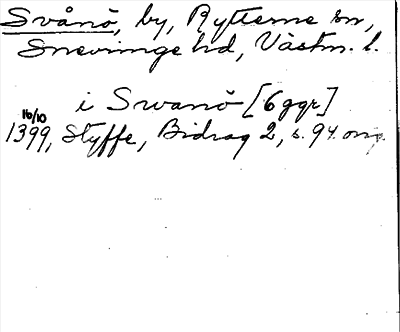 Svånö, by, Rytterne sn,
Snevringe hd, Västm. l.
i Swanö [6 ggr]
16/10
1399, Styffe, Bidrag 2, s. 94 omr.